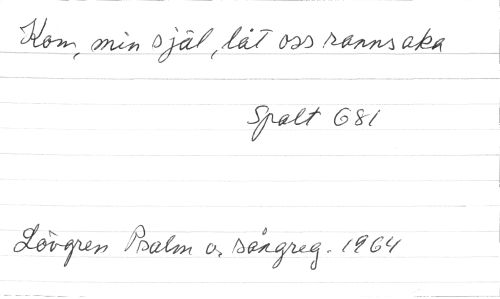 Kom, min själ, låt oss rannsaka
Spalt 681
Lövgren Psalm o. sångreg. 1964